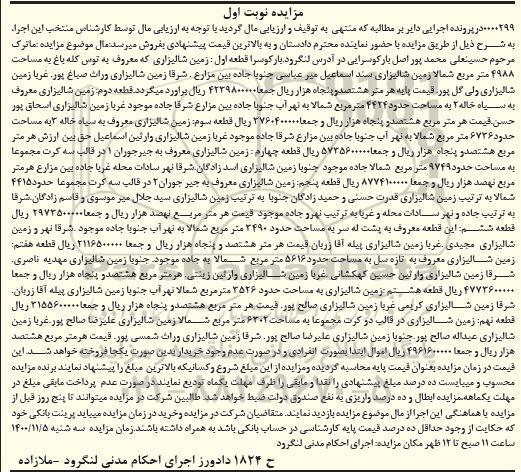 مزایده نوبت اول
۰۰۰۰۲۹۹درپرونده اجرایی دایر بر مطالبه که منتهی به توقیف و ارزیابی مال گردید با توجه به ارزیابی مال توسط کارشناس منتخب این اجرا،
به شرح ذیل از طریق مزایده با حضور نماینده محترم دادستان و به بالاترین قیمت پیشنهادی بفروش میرسد:مال موضوع مزایده :ماترک
مرحوم حسینعلی محمد پور اصل بارکوسرایی در آدرس لنگرود،بارکوسرا قطعه اول : زمین شالیزاری که معروف به توس کله باغ به مساحت
۴۹۸۸ متر مربع شمالا زمین شالیزاری اسد اسماعیل میر عباسی جنوبا جاده بین مزارع . شرقا زمین شالیزاری وراث صباغ پور. غربا زمین
شالیزاری ولی گل پور. قیمت پایه هر متر هشتصدوپنجاه هزار ریال جمعا۴۲۳۹۸۰۰۰۰۰ ریال براورد میگردد.قطعه دوم: زمین شالیزاری معروف
به سیاه خاله۲ به مساحت حدود۴۴۲۴ مترمربع شمالا به نهر آب جنوبا جاده بین مزارع شرقا جاده موجود غربا زمین شالیزاری اسحاق پور
حسن.قیمت هر متر مربع هشتصدو پنجاه هزار ریال و جمعا۳۷۶۰۴۰۰۰۰۰ ریال قطعه سوم: زمین شالیزاری معروف به سیاه خاله ۳به مساحت
حدود۶۷۳۶ متر مربع شمالا به نهر آب جنوبا جاده بین مزارع شرقا جاده موجود غربا زمین شالیزاری وارثین اسماعیل حق بین ارزش هر متر
مربع هشتصدو پنجاه هزار ریال و جمعا ۵۷۳۵۶۰۰۰۰۰ ریال قطعه چهارم : زمین شالیزاری معروف به جیرجوران ۱ در قالب سه کرت مجموعا
به مساحت حدود۹۷۴۹ متر مربع شمالا جاده موجود جنوبا زمین شالیزاری اسد زادگان.شرقا نهر سادات محله غربا جاده بین مزارع هرمتر
مربع نهصد هزار ریال و جمعا ۸۷۷۴۱۰۰۰۰۰ ریال قطعه پنجم: زمین شالیزاری معروف به جیر جوران۲ در قالب سه کرت مجموعا حدود۴۴۱۵
شمالا به ترتیب زمین شالیزاری قدرت حسنی و حمید زادگان جنوبا به ترتیب زمین شالیزاری سید جلال میر موسوی و قاسم زادگان.شرقا
به ترتیب جاده و نهر سادات محله و غربا به ترتیب نهرو جاده موجود قیمت هر متر مربع نهصد هزار ریال و جمعا۲۹۷۳۵۰۰۰۰۰ ریال
قطعه ششم: این قطعه معروف به پشت له سر به مساحت حدود ۳۴۹۰ متر مربع شمالا به نهر آب جنوبا جاده موجود .شرقا نهر و زمین
شالیزاری مجیدی. غربا زمین شالیزاری پیله آقا زربان.قیمت هر متر هشتصد و پنجاه هزار ریال و جمعا ۲۱۱۶۵۰۰۰۰۰ ریال قطعه هفتم:
زمین شالیزاری معروف به تازه سل به مساحت حدود۵۶۱۶ متر مربع شمالا به جاده موجود. جنوبا زمین شالیزاری مهدیه ناصری.
شرقا زمین شالیزاری وارثین حسین کهکشانی. غربا زمین شالیزاری وارثین زینتی. هرمتر مربع هشتصدو پنجاه هزار ریال و جمعا
۴۷۷۳۶۰۰۰۰۰ ریال قطعه هشتم: زمین شالیزاری به مساحت حدود ۲۵۲۶ مترمربع شمالا نهر آب جنوبا زمین شالیزاری پیله آقا زربان.
شرقا زمین شالیزاری کرئمی غربا زمین شالیزاری صالح پور. قیمت هر متر مربع هشتصدو پنجاه هزار ریال و جمعا۳۱۵۵۶۰۰۰۰۰ ریال
قطعه نهم: زمین شالیزاری در قالب دو کرت مجموعا به مساحت۶۳۰۲ متر مربع شمالا زمین شالیزاری علیرضا صالح پور.غربا زمین
شالیزاری عبداله صالح پور.جنوبا زمین شالیزاری علیرضا صالح پور. شرقا زمین شالیزاری وراث شمسی پور. قیمت هرمتر مربع هشتصد
هزار ریال و جمعا ۴۹۶۱۶۰۰۰۰۰ ریال اموال ابتدا بصورت انفرادی و در صورت عدم وجود خریدار بدین صورت یکجا فروخت خواهد شد. این
قیمت در زمان مزایده بعنوان قیمت پایه محاسبه گردیده ومزایده از این مبلغ شروع وکسانیکه بالاترین مبلغ را پیشنهاد نمایند برنده مزایده
محسوب و میبایست ده درصد مبلغ پیشنهادی را نقدا و مابقی را ظرف مهلت یکماه تودیع نمایند.در صورت عدم پرداخت مابقی مبلغ در
مهلت یکماهه،مزایده ابطال و ده درصد واریزی به نفع صندوق دولت ضبط خواهد شد. طالبین شرکت در مزایده میتوانند تا پنج روز قبل از
مزایده با هماهنگی این اجرا از مال موضوع مزایده بازدید نمایند. متقاضیان شرکت در مزایده وخرید در زمان مزایده میباید پرینت بانکی خود
که حکایت از وجود حداقل ده درصد قیمت پایه کارشناسی در حساب بانکی باشد به همراه داشته باشند.زمان مزایده سه شنبه ۱۴۰۰/۱۱/۵
ساعت ۱۱ صبح تا ۱۲ ظهر مکان مزایده: اجرای احکام مدنی لنگرود
ح ۱۸۲۴ دادورز اجرای احکام مدنی لنگرود –ملازاده